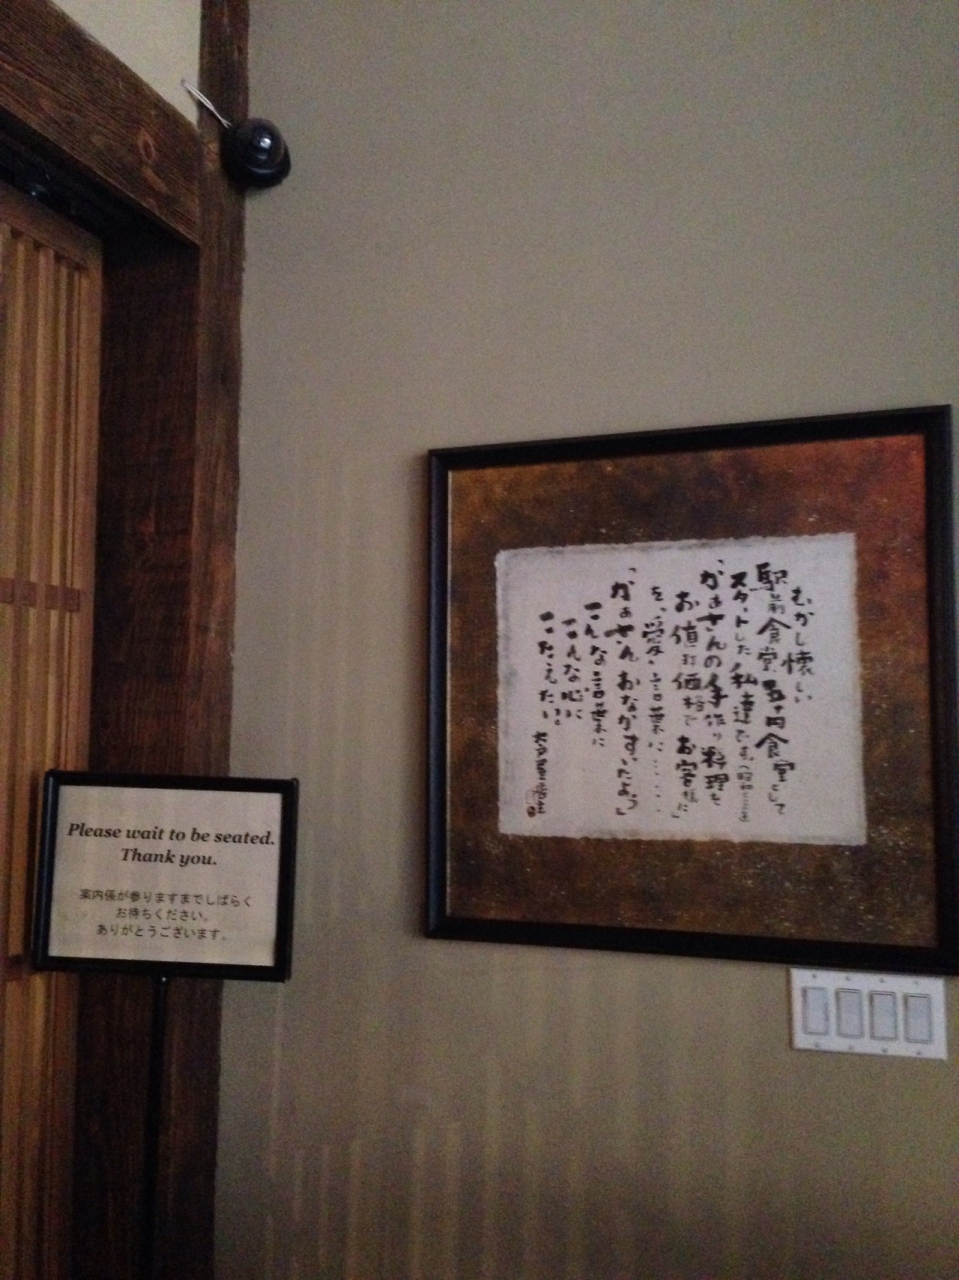 Please wait to be seated.
Thank you.
案内係が参りますまでしばらく
お待ちください。
ありがとうございます。
むかし懐しい
駅前食堂五十円食堂として
スタートした私達です。
「かあさんの手作り料理を
お値打価格でお客様に」
を、愛い言葉に……
「かあさんおなかすいたよう」
こんな言葉に
こんな心に
こたえたい
大戸屋